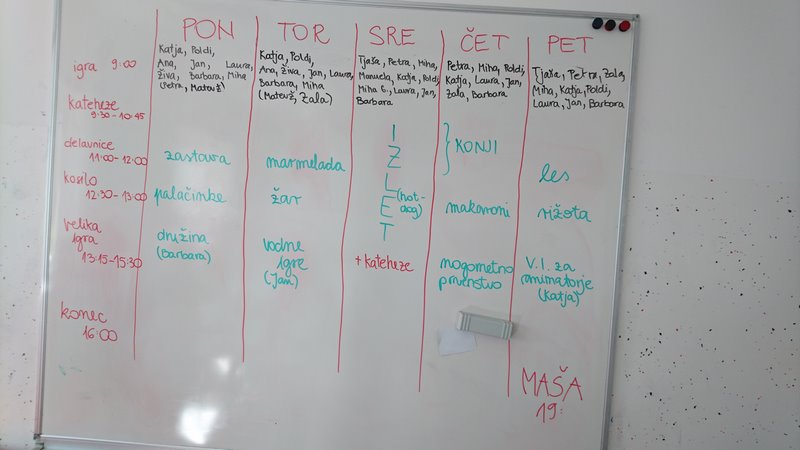 PON
TOR
SRE
ČET
PET
igra 9:00
Katja, Poldi,
Ana, Jan, Laura,
Živa, Barbara, Miha
(Petra, Matevž)
Katja, Poldi,
Ana, Živa, Jan, Laura,
Barbara, Miha
(Matevž, Zala)
Tjaša, Petra, Miha,
Manuela, Katja, Poldi,
Miha G., Laura, Jan,
Barbara
Petra, Miha, Poldi,
Katja, Laura, Jan,
Zala, Barbara
Tjaša, Petra, Zala,
Miha, Katja, Poldi,
Laura, Jan, Barbara
kateheze
9:30-10:45
delavnice
11:00-12:00
zastava
marmelada
IZLET
(hot-
dog)
KONJI
les
kosilo
12:30-13:00
palačinke
žar
makaroni
rižota
velika
igra
13:15-15:30
družina
(Barbara)
vodne
igre
(Jan)
+ kateheze
nogometno
prvenstvo
V.I. za
animatorje
(Katja)
konec
16:00
MAŠA
19: